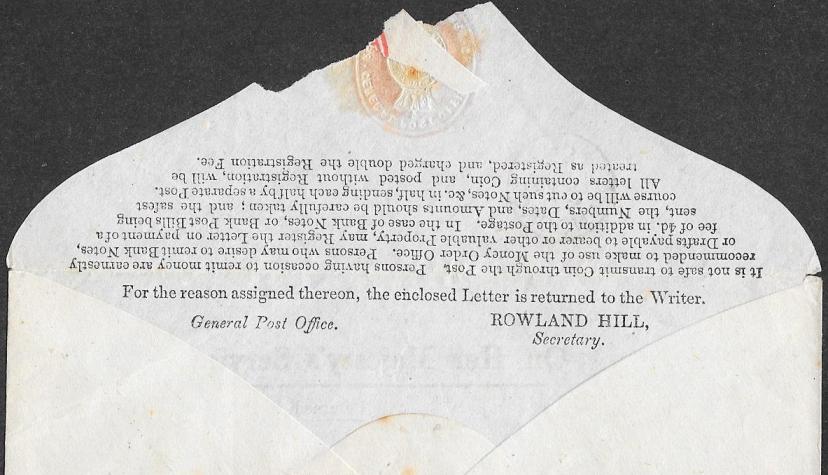 It is not safe to transmit Coin through the Post. Persons having occasion to remit money are earnestly
recommended to make use of the Money Order Office. Persons who may desire to remit Bank Notes,
or Drafts payable to bearer or other valuable Property, may Register the Letter on payment of a
fee of 4d. in addition to the Postage. In the case of Bank Notes, or Bank Post Bills being
sent, the Numbers, Dates, and Amounts should be carefully taken; and the safest
course will be to cut such Notes, &c. in half, sending each half by a separate Post.
All letters containing Coin, and posted without Registration, will be
treated as Registered, and charged double the Registration Fee.
For the reason assigned thereon, the enclosed Letter is returned to the Writer.
General Post Office.
ROWLAND HILL,
Secretary.
On Her Majesty's Service